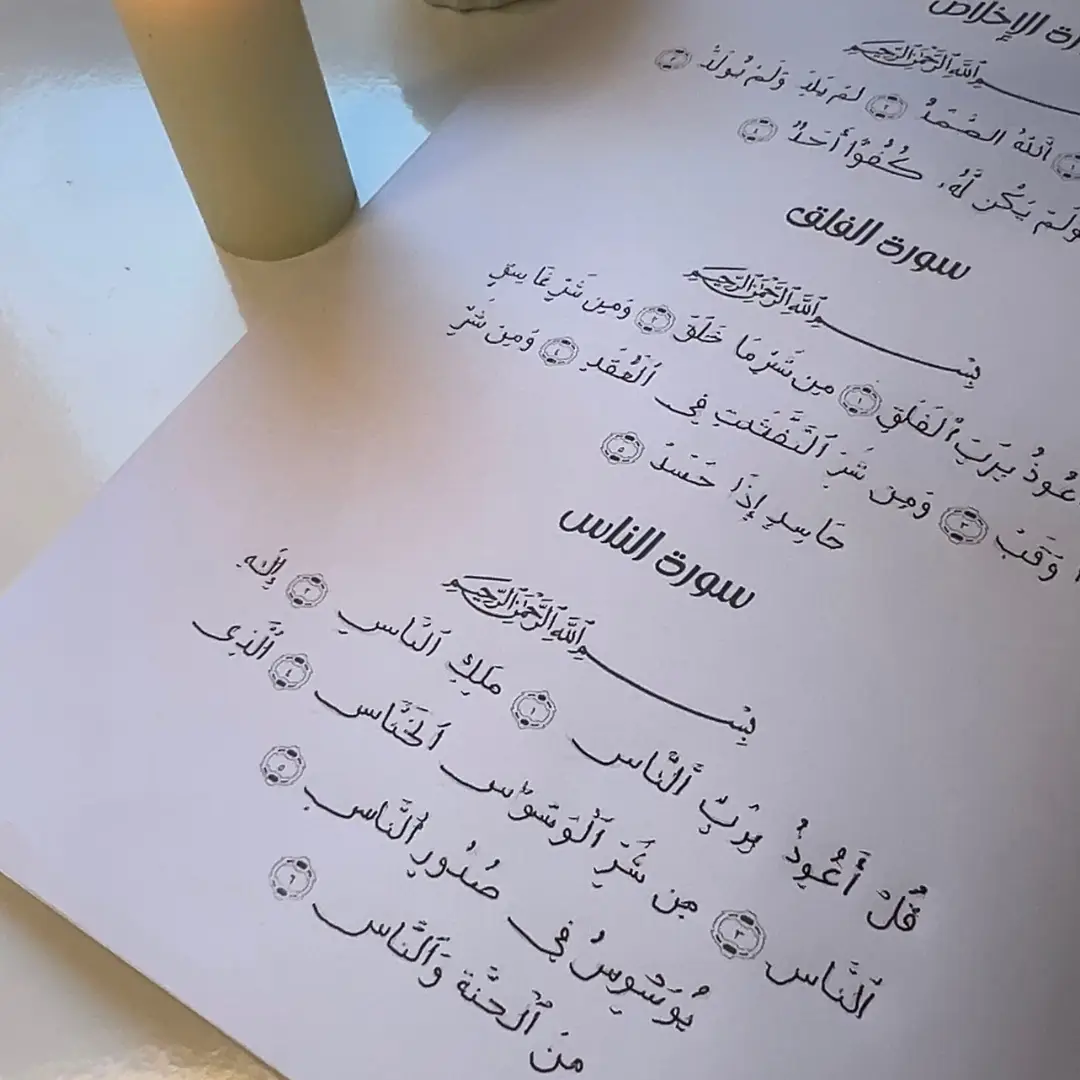 سورة الإخلاص
بِسْمِ ٱللَّهِ ٱلرَّحْمَٰنِ ٱلرَّحِيمِ
١ ٱللَّهُ ٱلصَّمَدُ ٢ لَمْ يَلِدْ وَلَمْ يُولَدْ ٣
وَلَمْ يَكُن لَّهُۥ كُفُوًا أَحَدٌ ٤
سورة الفلق
بِسْمِ ٱللَّهِ ٱلرَّحْمَٰنِ ٱلرَّحِيمِ
أَعُوذُ بِرَبِّ ٱلْفَلَقِ ١ مِن شَرِّ مَا خَلَقَ ٢ وَمِن شَرِّ غَاسِقٍ
وَقَبَ ٣ وَمِن شَرِّ ٱلنَّفَّٰثَٰتِ فِى ٱلْعُقَدِ ٤ وَمِن شَرِّ
حَاسِدٍ إِذَا حَسَدَ ٥
سورة الناس
بِسْمِ ٱللَّهِ ٱلرَّحْمَٰنِ ٱلرَّحِيمِ
قُلْ أَعُوذُ بِرَبِّ ٱلنَّاسِ ١ مَلِكِ ٱلنَّاسِ ٢ إِلَٰهِ
ٱلنَّاسِ ٣ مِن شَرِّ ٱلْوَسْوَاسِ ٱلْخَنَّاسِ ٤ ٱلَّذِى
يُوَسْوِسُ فِى صُدُورِ ٱلنَّاسِ ٥
مِنَ ٱلْجِنَّةِ وَٱلنَّاسِ ٦